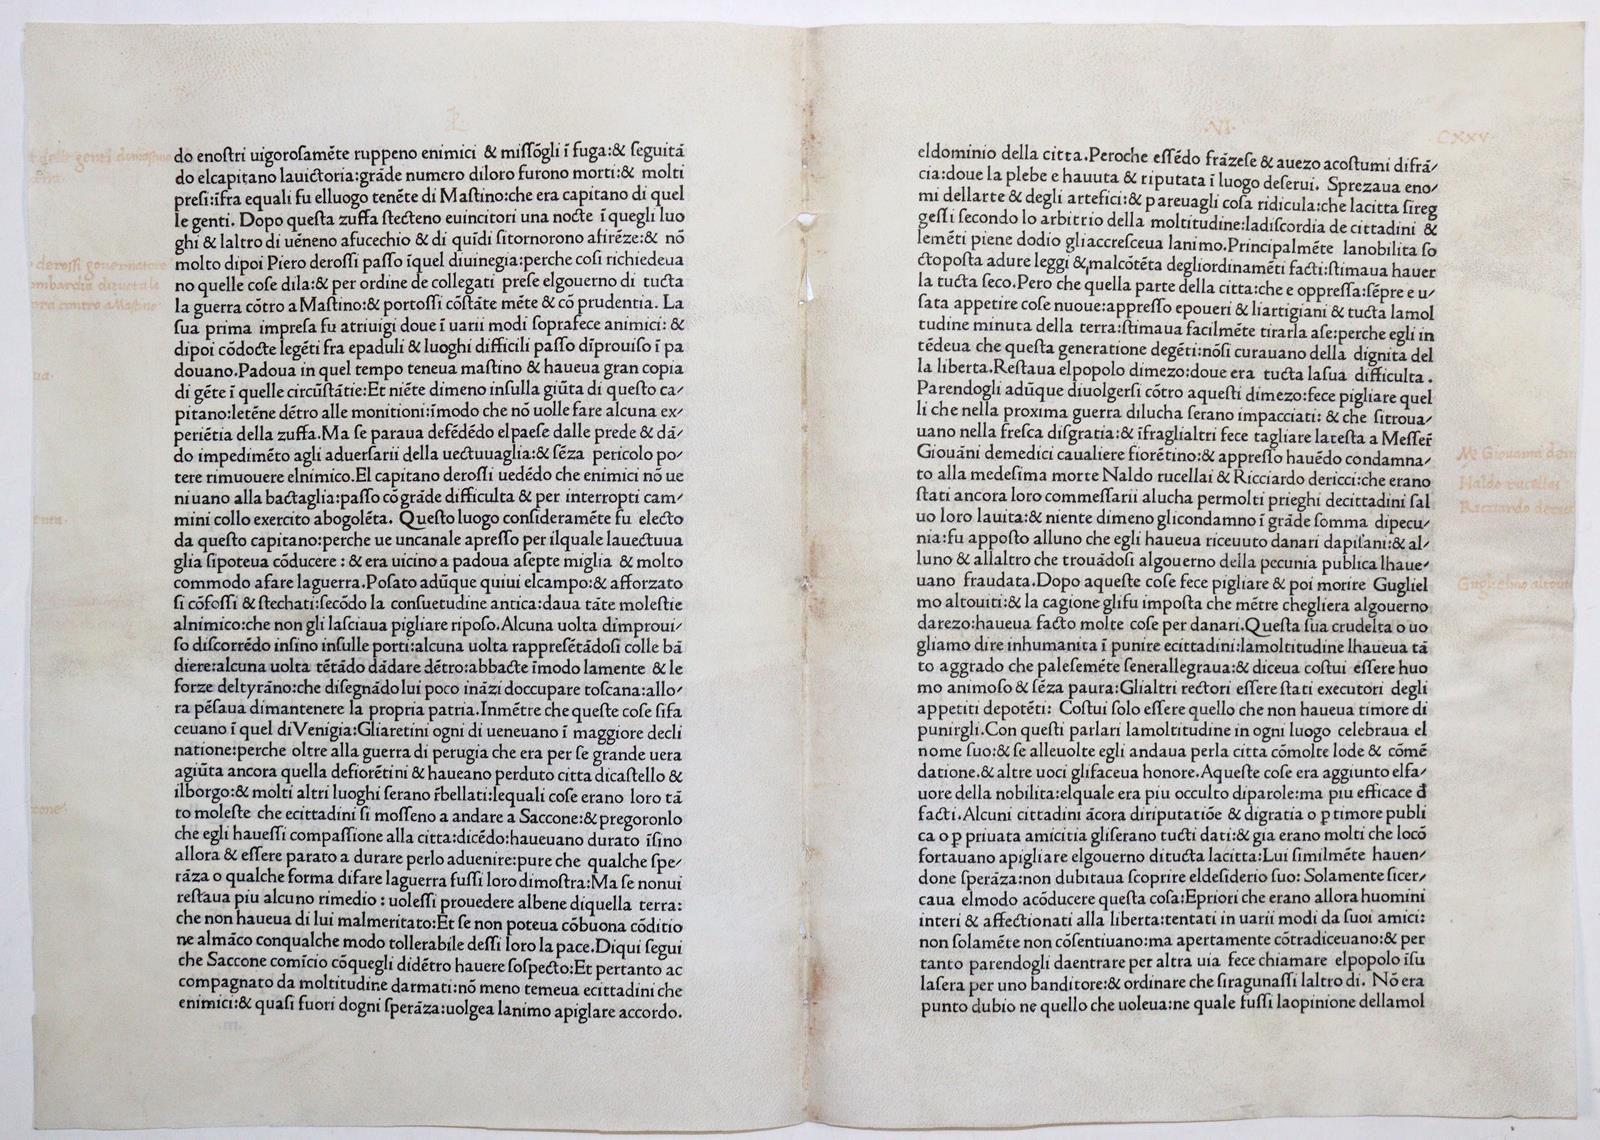 do enoſtri uigoroſamēte ruppeno enimici & miſſōgli ī fuga:& ſeguitā
do elcapitano lauictoria:grāde numero diloro furono morti:& molti
preſi:īfra equali fu elluogo tenēte di Maſtino:che era capitano di quel
le genti. Dopo queſta zuffa ſtecteno euincitori una nocte ī quegli luo
ghi & laltro di uēneno afucechio & di quīdi ſitornorono afirēze:& nō
molto dipoi Piero deroſſi paſſo īquel diuinegia:perche coſi richiedeua
no quelle coſe dila:& per ordine de collegati preſe elgouerno di tucta
la guerra cōtro a Maſtino:& portoſſi cōſtāte mēte & cō prudentia. La
ſua prima impreſa fu atriuigi doue ī uarii modi ſoprafece animici: &
dipoi cōdocte legēti fra epaduli & luoghi difficili paſſo dīprouiſo ī pa
douano.Padoua in quel tempo teneua maſtino & haueua gran copia
di gēte ī quelle circūſtātie:Et niēte dimeno inſulla giūta di queſto ca/
pitano:letēne dētro alle monitioni:īmodo che nō uolle fare alcuna ex/
periētia della zuffa.Ma ſe paraua defēdēdo elpaeſe dalle prede & dā/
do impedimēto agli aduerſarii della uectuuaglia:& ſēza pericolo po/
tere rimuouere elnimico.El capitano deroſſi uedēdo che enimici nō ue
niuano alla bactaglia:paſſo cōgrāde difficulta & per interropti cam/
mini collo exercito abogolēta. Queſto luogo conſideramēte fu electo
da queſto capitano:perche ue uncanale apreſſo per ilquale lauectuua
glia ſipoteua cōducere : & era uicino a padoua aſepte miglia & molto
commodo afare laguerra.Poſato adūque quiui elcampo:& afforzato
ſi cōfoſſi & ſtechati:ſecōdo la conſuetudine antica:daua tāte moleſtie
alnimico:che non gli laſciaua pigliare ripoſo.Alcuna uolta dimproui/
ſo diſcorrēdo inſino inſulle porti:alcuna uolta rappreſētādoſi colle bā
diere:alcuna uolta tētādo dādare dētro:abbacte īmodo lamente & le
forze deltyrāno:che diſegnādo lui poco ināzi doccupare toſcana:allo/
ra pēſaua dimantenere la propria patria.Inmētre che queſte coſe ſifa
ceuano ī quel diVenigia:Gliaretini ogni di ueneuano ī maggiore decli
natione:perche oltre alla guerra di perugia che era per ſe grande uera
agiūta ancora quella defiorētini & haueano perduto citta dicaſtello &
ilborgo:& molti altri luoghi ſerano r̄bellati:lequali coſe erano loro tā
to moleſte che ecittadini ſi moſſeno a andare a Saccone:& pregoronlo
che egli haueſſi compaſſione alla citta:dicēdo:haueuano durato īſino
allora & eſſere parato a durare perlo aduenire:pure che qualche ſpe/
rāza o qualche forma difare laguerra fuſſi loro dimoſtra:Ma ſe nonui
reſtaua piu alcuno rimedio : uoleſſi prouedere albene diquella terra:
che non haueua di lui malmeritato:Et ſe non poteua cōbuona cōditio
ne almāco conqualche modo tollerabile deſſi loro la pace.Diqui ſegui
che Saccone comīcio cōquegli didētro hauere ſoſpecto:Et pertanto ac
compagnato da moltitudine darmati:nō meno temeua ecittadini che
enimici:& quaſi fuori dogni ſperāza:uolgea lanimo apiglare accordo.
·VI·
CXXV
eldominio della citta.Peroche eſſēdo frāzeſe & auezo acoſtumi difrā/
cia:doue la plebe e hauuta & riputata ī luogo deſerui. Sprezaua eno/
mi dellarte & degli artefici:& pareuagli coſa ridicula:che lacitta ſireg
geſſi ſecondo lo arbitrio della moltitudine:ladiſcordia de cittadini &
lemēti piene dodio gliaccreſceua lanimo.Principalmēte lanobilita ſo
ctopoſta adure leggi &,malcōtēta degliordinamēti facti:ſtimaua hauer
la tucta ſeco.Pero che quella parte della citta:che e oppreſſa:ſēpre e u/
ſata appetire coſe nuoue:appreſſo epoueri & liartigiani & tucta lamol
tudine minuta della terra:ſtimaua facilmēte tirarla aſe:perche egli in
tēdeua che queſta generatione degēti:nōſi curauano della dignita del
la liberta.Reſtaua elpopolo dimezo:doue era tucta laſua difficulta .
Parendogli adūque diuolgerſi cōtro aqueſti dimezo:fece pigliare quel
li che nella proxima guerra dilucha ſerano impacciati: & che ſitroua/
uano nella freſca diſgratia:& īfraglialtri fece tagliare lateſta a Meſſer̄
Giouāni demedici caualiere fiorētino:& appreſſo hauēdo condamna/
to alla medeſima morte Naldo rucellai & Ricciardo dericci:che erano
ſtati ancora loro commeſſarii alucha permolti prieghi decittadini ſal
uo loro lauita:& niente dimeno glicondamno ī grāde ſomma dipecu/
nia:fu appoſto alluno che egli haueua riceuuto danari dapiſani:& al/
luno & allaltro che trouādoſi algouerno della pecunia publica lhaue/
uano fraudata.Dopo aqueſte coſe fece pigliare & poi morire Gugliel
mo altouiti:& la cagione glifu impoſta che mētre chegliera algouerno
darezo:haueua facto molte coſe per danari.Queſta ſua crudelta o uo
gliamo dire inhumanita ī punire ecittadini:lamoltitudine lhaueua tā
to aggrado che paleſemēte ſenerallegraua:& diceua coſtui eſſere huo
mo animoſo & ſēza paura:Glialtri rectori eſſere ſtati executori degli
appetiti depotēti: Coſtui ſolo eſſere quello che non haueua timore di
punirgli.Con queſti parlari lamoltitudine in ogni luogo celebraua el
nome ſuo:& ſe alleuolte egli andaua perla citta cōmolte lode & cōmē
datione.& altre uoci glifaceua honore.Aqueſte coſe era aggiunto elfa/
uore della nobilita:elquale era piu occulto diparole:ma piu efficace đ
facti.Alcuni cittadini ācora diriputatiōe & digratia o ꝑ timore publi
ca o ꝑ priuata amicitia gliſerano tucti dati:& gia erano molti che locō
fortauano apigliare elgouerno ditucta lacitta:Lui ſimilmēte hauen/
done ſperāza:non dubitaua ſcoprire eldeſiderio ſuo: Solamente ſicer/
caua elmodo acōducere queſta coſa:Epriori che erano allora huomini
interi & affectionati alla liberta:tentati in uarii modi da ſuoi amici:
non ſolamēte non cōſentiuano:ma apertamente cōtradiceuano:& per
tanto parendogli daentrare per altra uia fece chiamare elpopolo īſu
laſera per uno banditore:& ordinare che ſiragunaſſi laltro di. Nō era
punto dubio ne quello che uoleua:ne quale fuſſi laopinione dellamol
Naldo rucellai